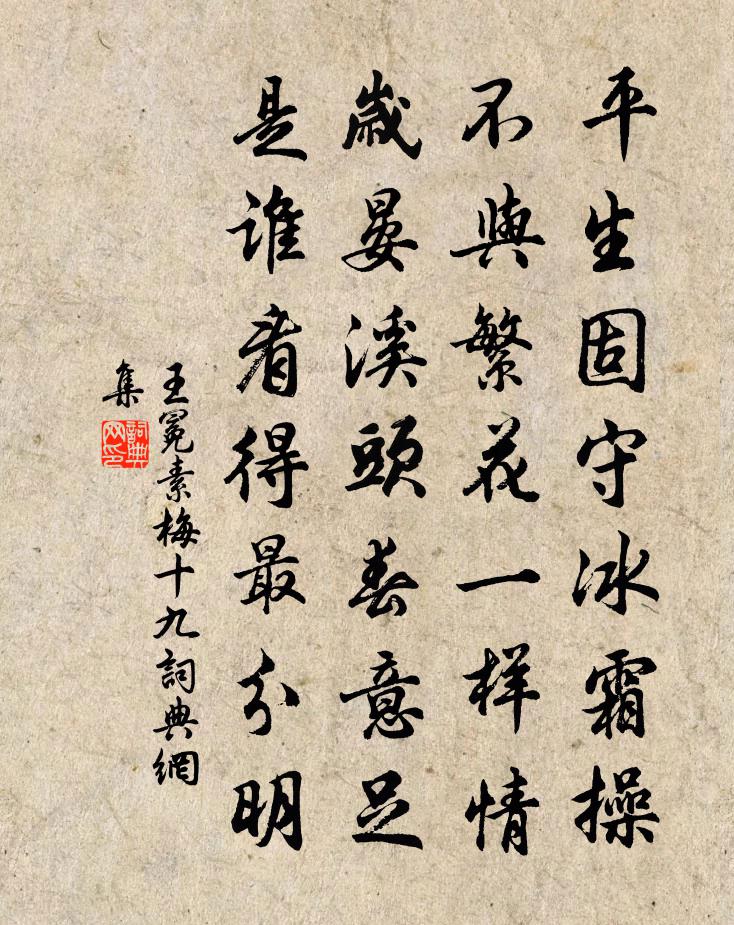 平生固守冰霜操
不與繁花一样情
歲晏溪頭春意足
是誰看得最分明
王冕素梅十九詞典網
集
詞典
网印